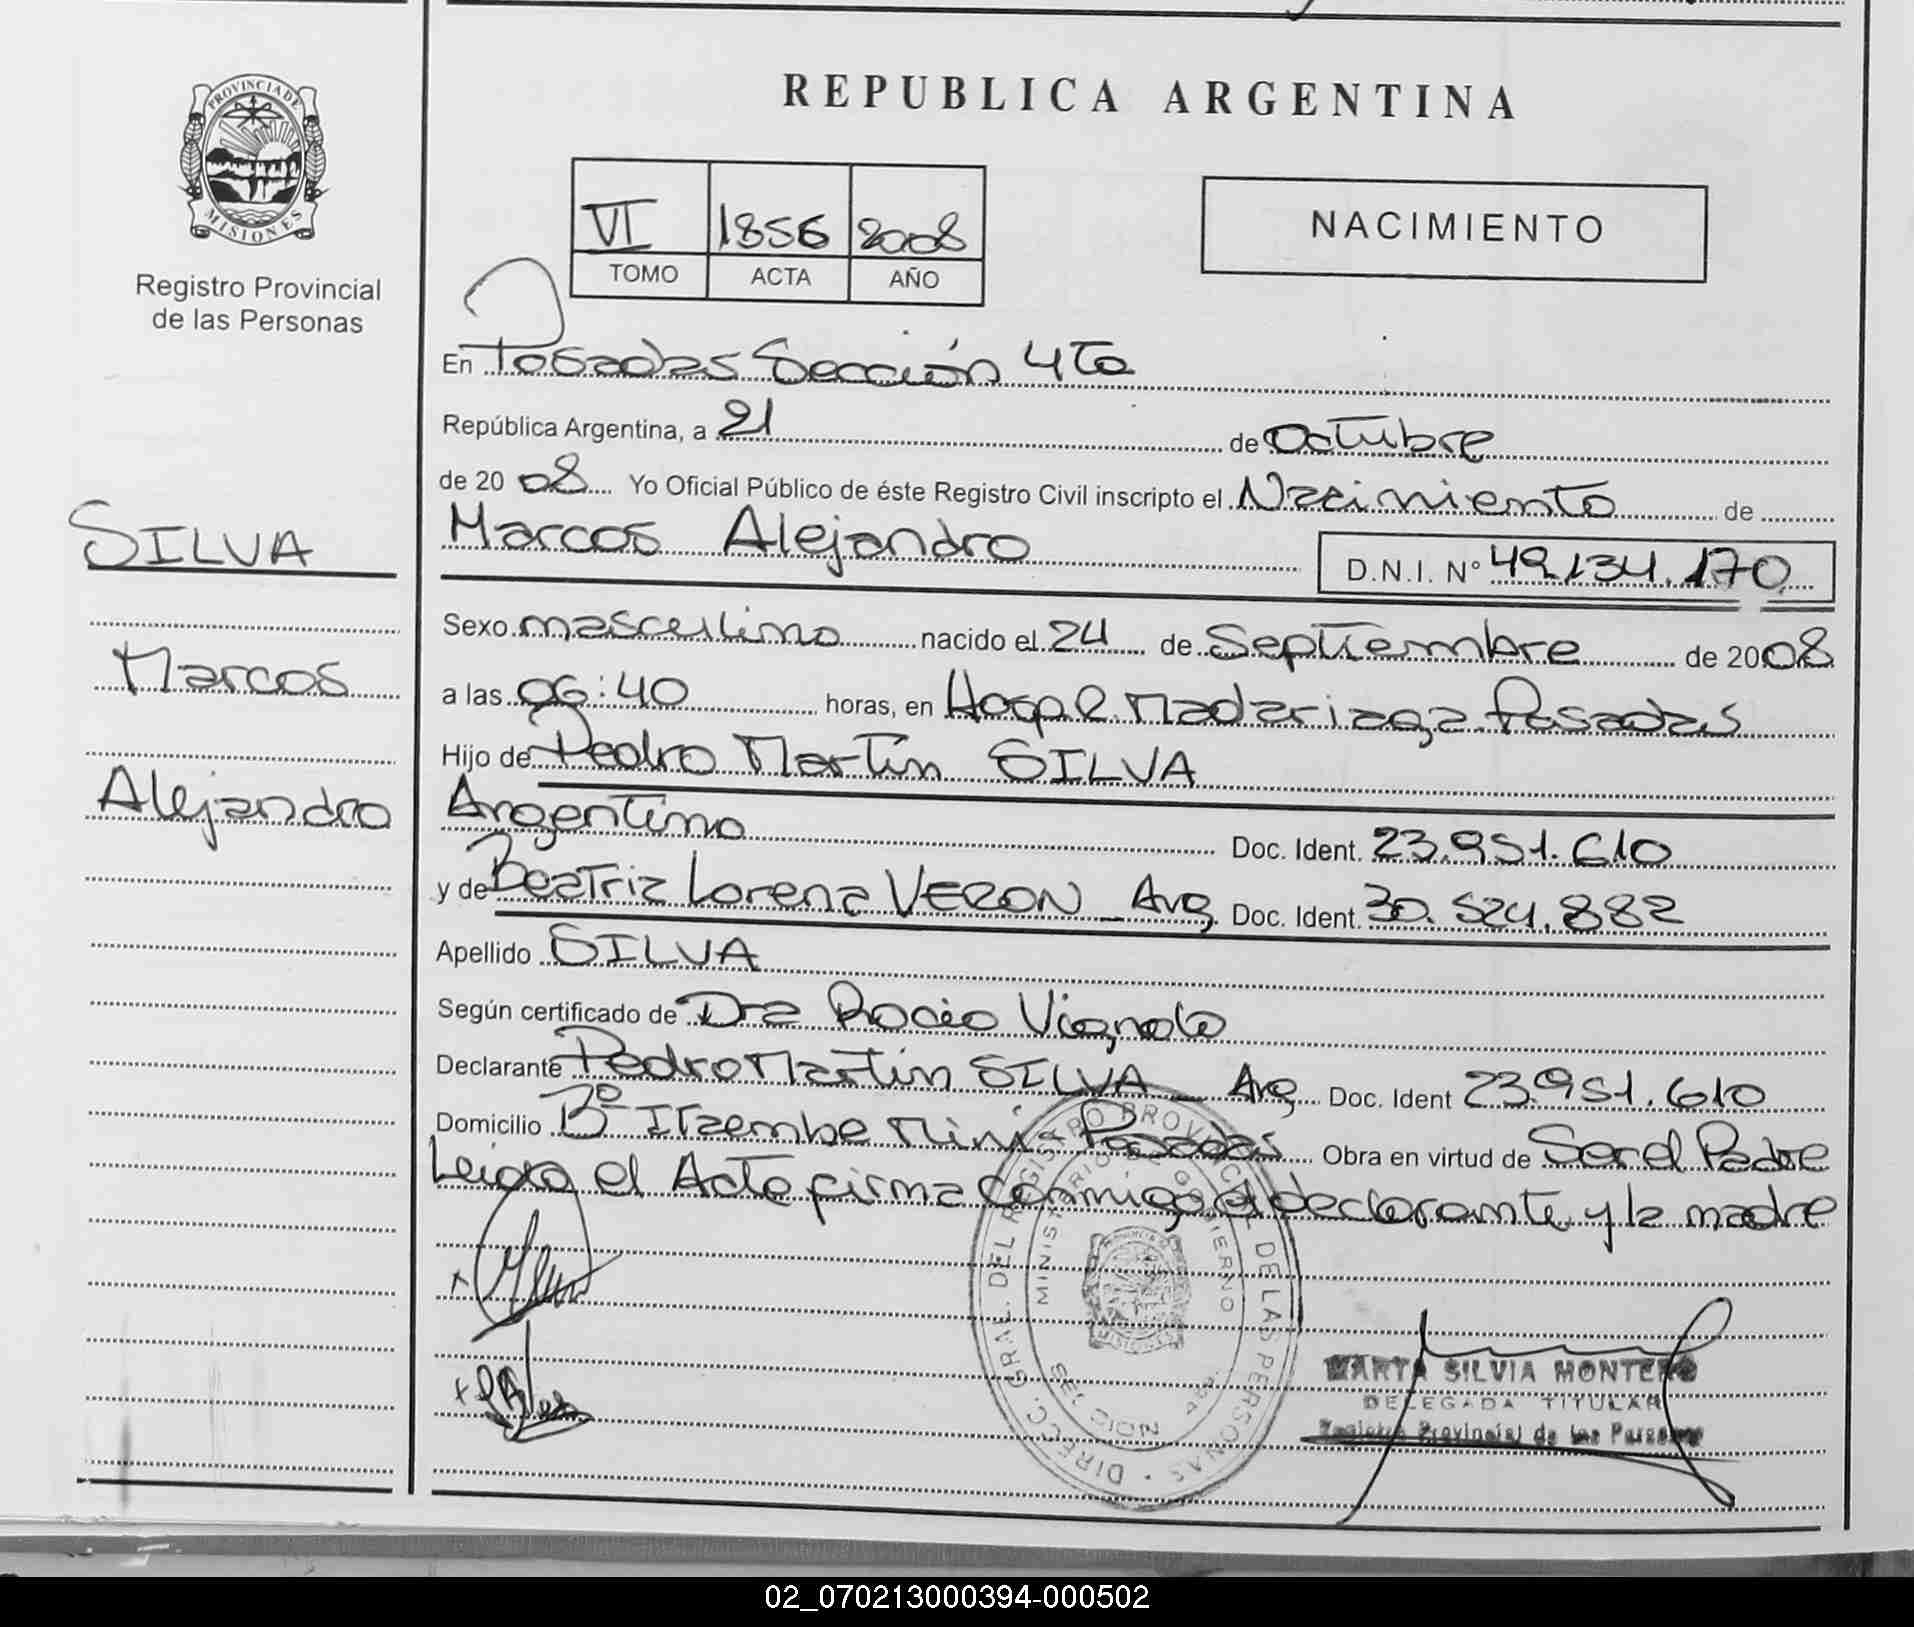 REPUBLICA ARGENTINA
PROVINCIA DE
MISIONES
Registro Provincial
de las Personas
VI 1856 2008
TOMO ACTA AÑO
NACIMIENTO
En Posadas Sección 4Ta
República Argentina, a 21 de Octubre
de 20 08 Yo Oficial Público de éste Registro Civil inscripto el Nacimiento de
SILVA
Marcos
Alejandro
Marcos Alejandro D.N.I. N° 49.134.170
Sexo masculino nacido el 24 de Septiembre de 2008
a las 06:40 horas, en Hosp R. Madariaga Posadas
Hijo de Pedro Martín SILVA
Argentino Doc. Ident. 23.951.610
y de Beatriz Lorena VERON _ Arg. Doc. Ident. 30.524.882
Apellido SILVA
Según certificado de Dra Rocio Vignolo
Declarante Pedro Martín SILVA _ Arg Doc. Ident 23.951.610
Domicilio Bº Itaembe Mini Posadas Obra en virtud de Ser el Padre
Leida el Acta firma conmigo el declarante y la madre
DIRECC. GRAL. DEL REGISTRO PROVINCIAL DE LAS PERSONAS
MINISTERIO DE GOBIERNO
MISIONES
MARTA SILVIA MONTERO
DELEGADA TITULAR
Registro Provincial de las Personas
02_070213000394-000502